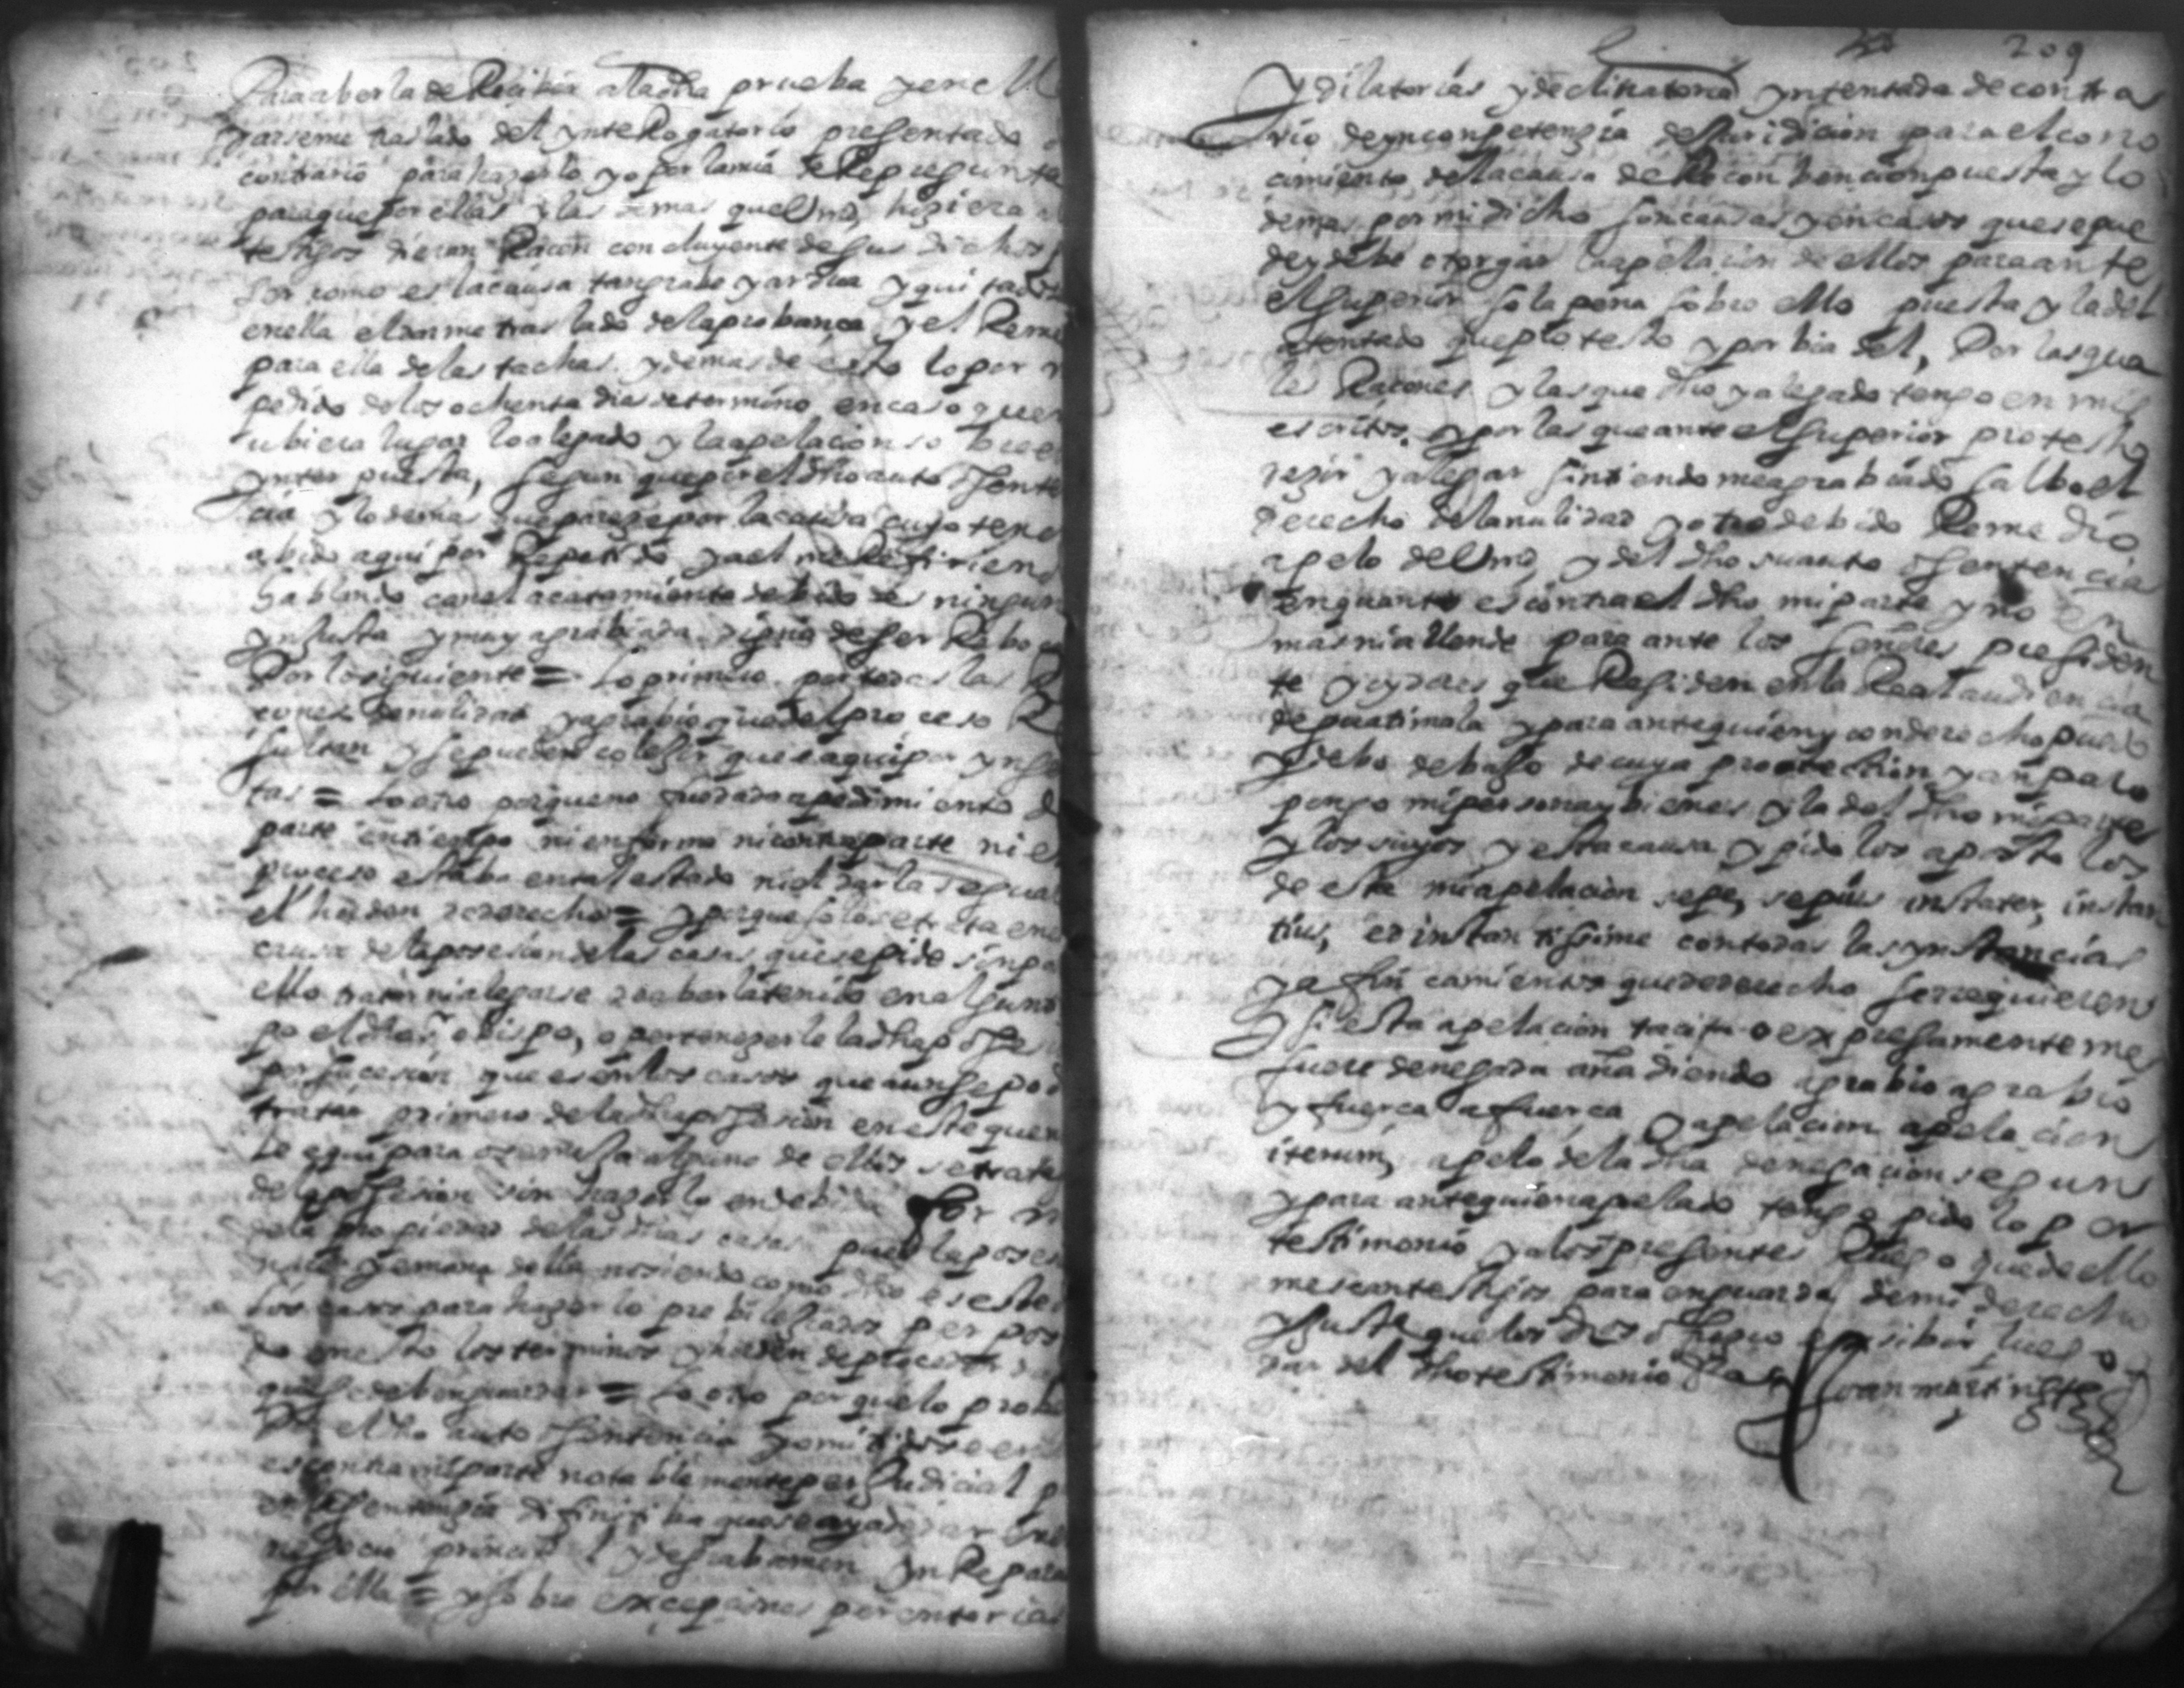 Para aberla de Recibir a la dha prueba y en el
darseme traslado del ynteRogatorio presentado
contrario para hazerlo yo por la mia de Repregunta
para que por ellas y las demas que Vmd hiziera a
testigos dieran Racon concluyente de sus dichos
por como es la causa tan grabe y ardua y quitar
en ella el darme traslado de la probança y el Reme
para ella de las tachas y demas de esto lo por
pedido de los ochenta dias de termino en caso que
ubiera lugar lo alegado y la apelacion so bre
ynterpuesta, segun que por el dho auto Sente
cia y lo demas que pareze por la causa cuyo teno
abido aqui por Repetido y a el me Refiriend
hablando con el acatamiento debido es ningun
ynjusta y muy agrabiada digna de ser Rebo
Por lo siguiente = Lo primero por todas las R
cones de nulidad y agrabio que del proceso Re
sultan y se pueden colegir que e aqui por ynse
tas = Lo otro porque no fue dado a pedimiento de
parte en tiempo ni en forma ni contra parte ni el
proceso estaba en tal estado ni el dar la segua
el horden de derecho = y porque solo se trata en
causa de la posesion de las casas que se pide sin pa
ello tratar ni alegarse de aberla tenido en algun
po el dho sr obispo, o pertenezerle la dha pose
por sucesion que es en los casos que aun se pod
tratar primero de la dha posesion en este que
se equipara o semeja alguno de ellos se trate
de la posesion sin hazerlo en debida for m
de la propiedad de las dhas casas pues la poses
naze y emana della no siendo como dho es este
los casos para hazerlo prebilegiados per pos
do en esto los terminos y horden de proceder
que se deben guardar = Lo otro porque lo prob
por el dho auto sentencia y omitidose en el
es contra mi parte notablemente perjudicial p
de la sentencia difinitiba que se aya de dar en
negocio principal y de grabamen ynRepara
por ella = y sobre excepciones perentorias
209
y dilatorias y declinatoria yntentada de contra
rio de yncompetenzia de juridicion para el cono
cimiento de la causa de Reconbencion puesta y lo
demas por mi dicho son causas y en casos que se pue
de y debe otorgar la apelacion de ellos para ante
el superior so la pena sobre ello puesta y la del
atentado que protesto y por bia del, Por las qua
les Racones y las que dho y alegado tengo en mis
escritos y por las que ante el superior protesto
dezir y alegar sintiendome agrabiado salbo el
derecho de la nulidad y otro debido Remedio
apelo de Vmd y del dho su auto Sentencia
en quanto es contra el dho mi parte y no en
mas ni allende para ante los señores presiden
te y oydores que Residen en la Real audiencia
de guatimala y para ante quien y con derecho puedo
y debo debajo de cuya protection y anparo
pongo mi persona y bienes y la del dho mi parte
y los suyos y esta causa y pido los apostolos
de esta mi apelacion sepe, sepius instanter, instan
tius, et instantisime con todas las ynstancias
y afincamientos que de derecho se requieren
y si esta apelacion tacita o expresamente me
fuere denegada añadiendo agrabio agrabio
y fuerca a fuerca y apelacion apelacion
iterum, apelo de la dha denegacion segun
y para ante quien apelado tengo pido lo por
testimonio y a los presentes Ruego que de ello
me sean testigos para en guarda de mi derecho
dar del dho testimonio
Joan martinez